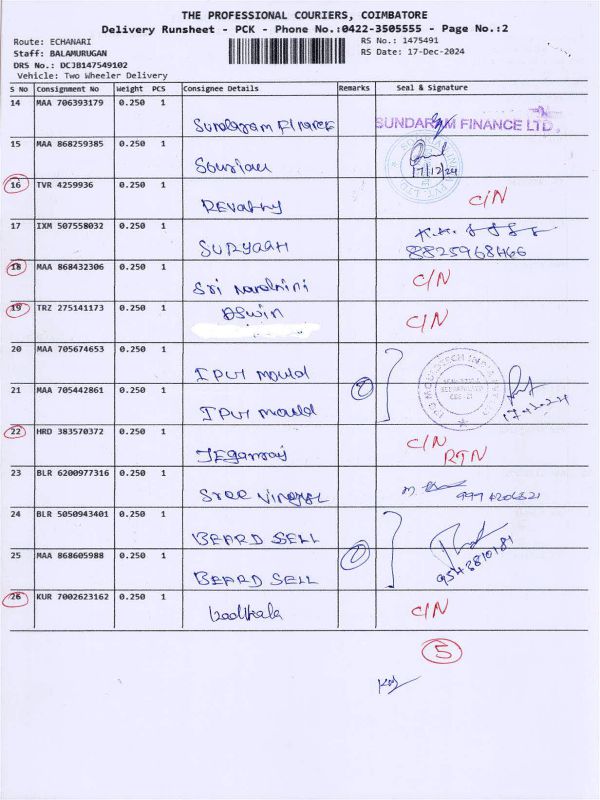 THE PROFESSIONAL COURIERS, COIMBATORE
Delivery Runsheet - PCK - Phone No.:0422-3505555 - Page No.:2
Route: ECHANARI
RS No.: 1475491
Staff: BALAMURUGAN
RS Date: 17-Dec-2024
DRS No.: DCJB147549102
Vehicle: Two Wheeler Delivery
S No Consignment No Weight PCS Consignee Details Remarks Seal & Signature
14 MAA 706393179 0.250 1
Sundaram Finance SUNDARAM FINANCE LTD.
15 MAA 868259385 0.250 1
17/12/24
16 TVR 4259936 0.250 1
Revathy C/N
17 IXM 507558032 0.250 1
SURYAAH 8825968466
18 MAA 868432306 0.250 1
Sri C/N
19 TRZ 275141173 0.250 1 ASwin
C/N
20 MAA 705674653 0.250 1
IPUT Mould
21 MAA 705442861 0.250 1
IPUT Mould
22 HRD 383570372 0.250 1 C/N
Jeganraj RTN
23 BLR 6200977316 0.250 1
Sree
24 BLR 5050943401 0.250 1
BEARD SELL
25 MAA 868605988 0.250 1
BEARD SELL 9543810181
26 KUR 7002623162 0.250 1
C/N
5